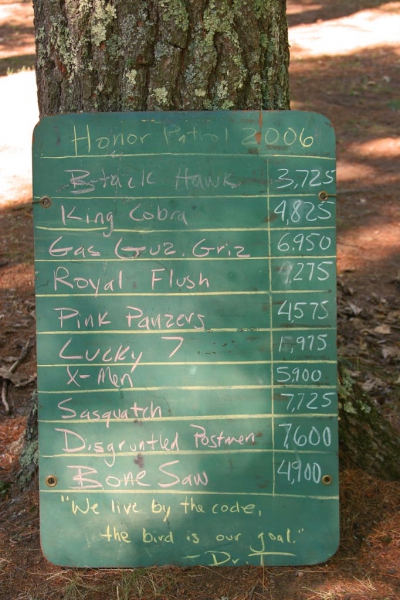 Honor Patrol 2006
Black Hawk 3,725
King Cobra 4,825
Gas Guz. Griz 6,950
Royal Flush 9275
Pink Panzers 4575
Lucky 7
X-Men 5,900
Sasquatch 7,725
Disgruntled Postmen 7,600
Bone Saw 4,900
"We live by the code,
the bird is our goal."
- Dr. T